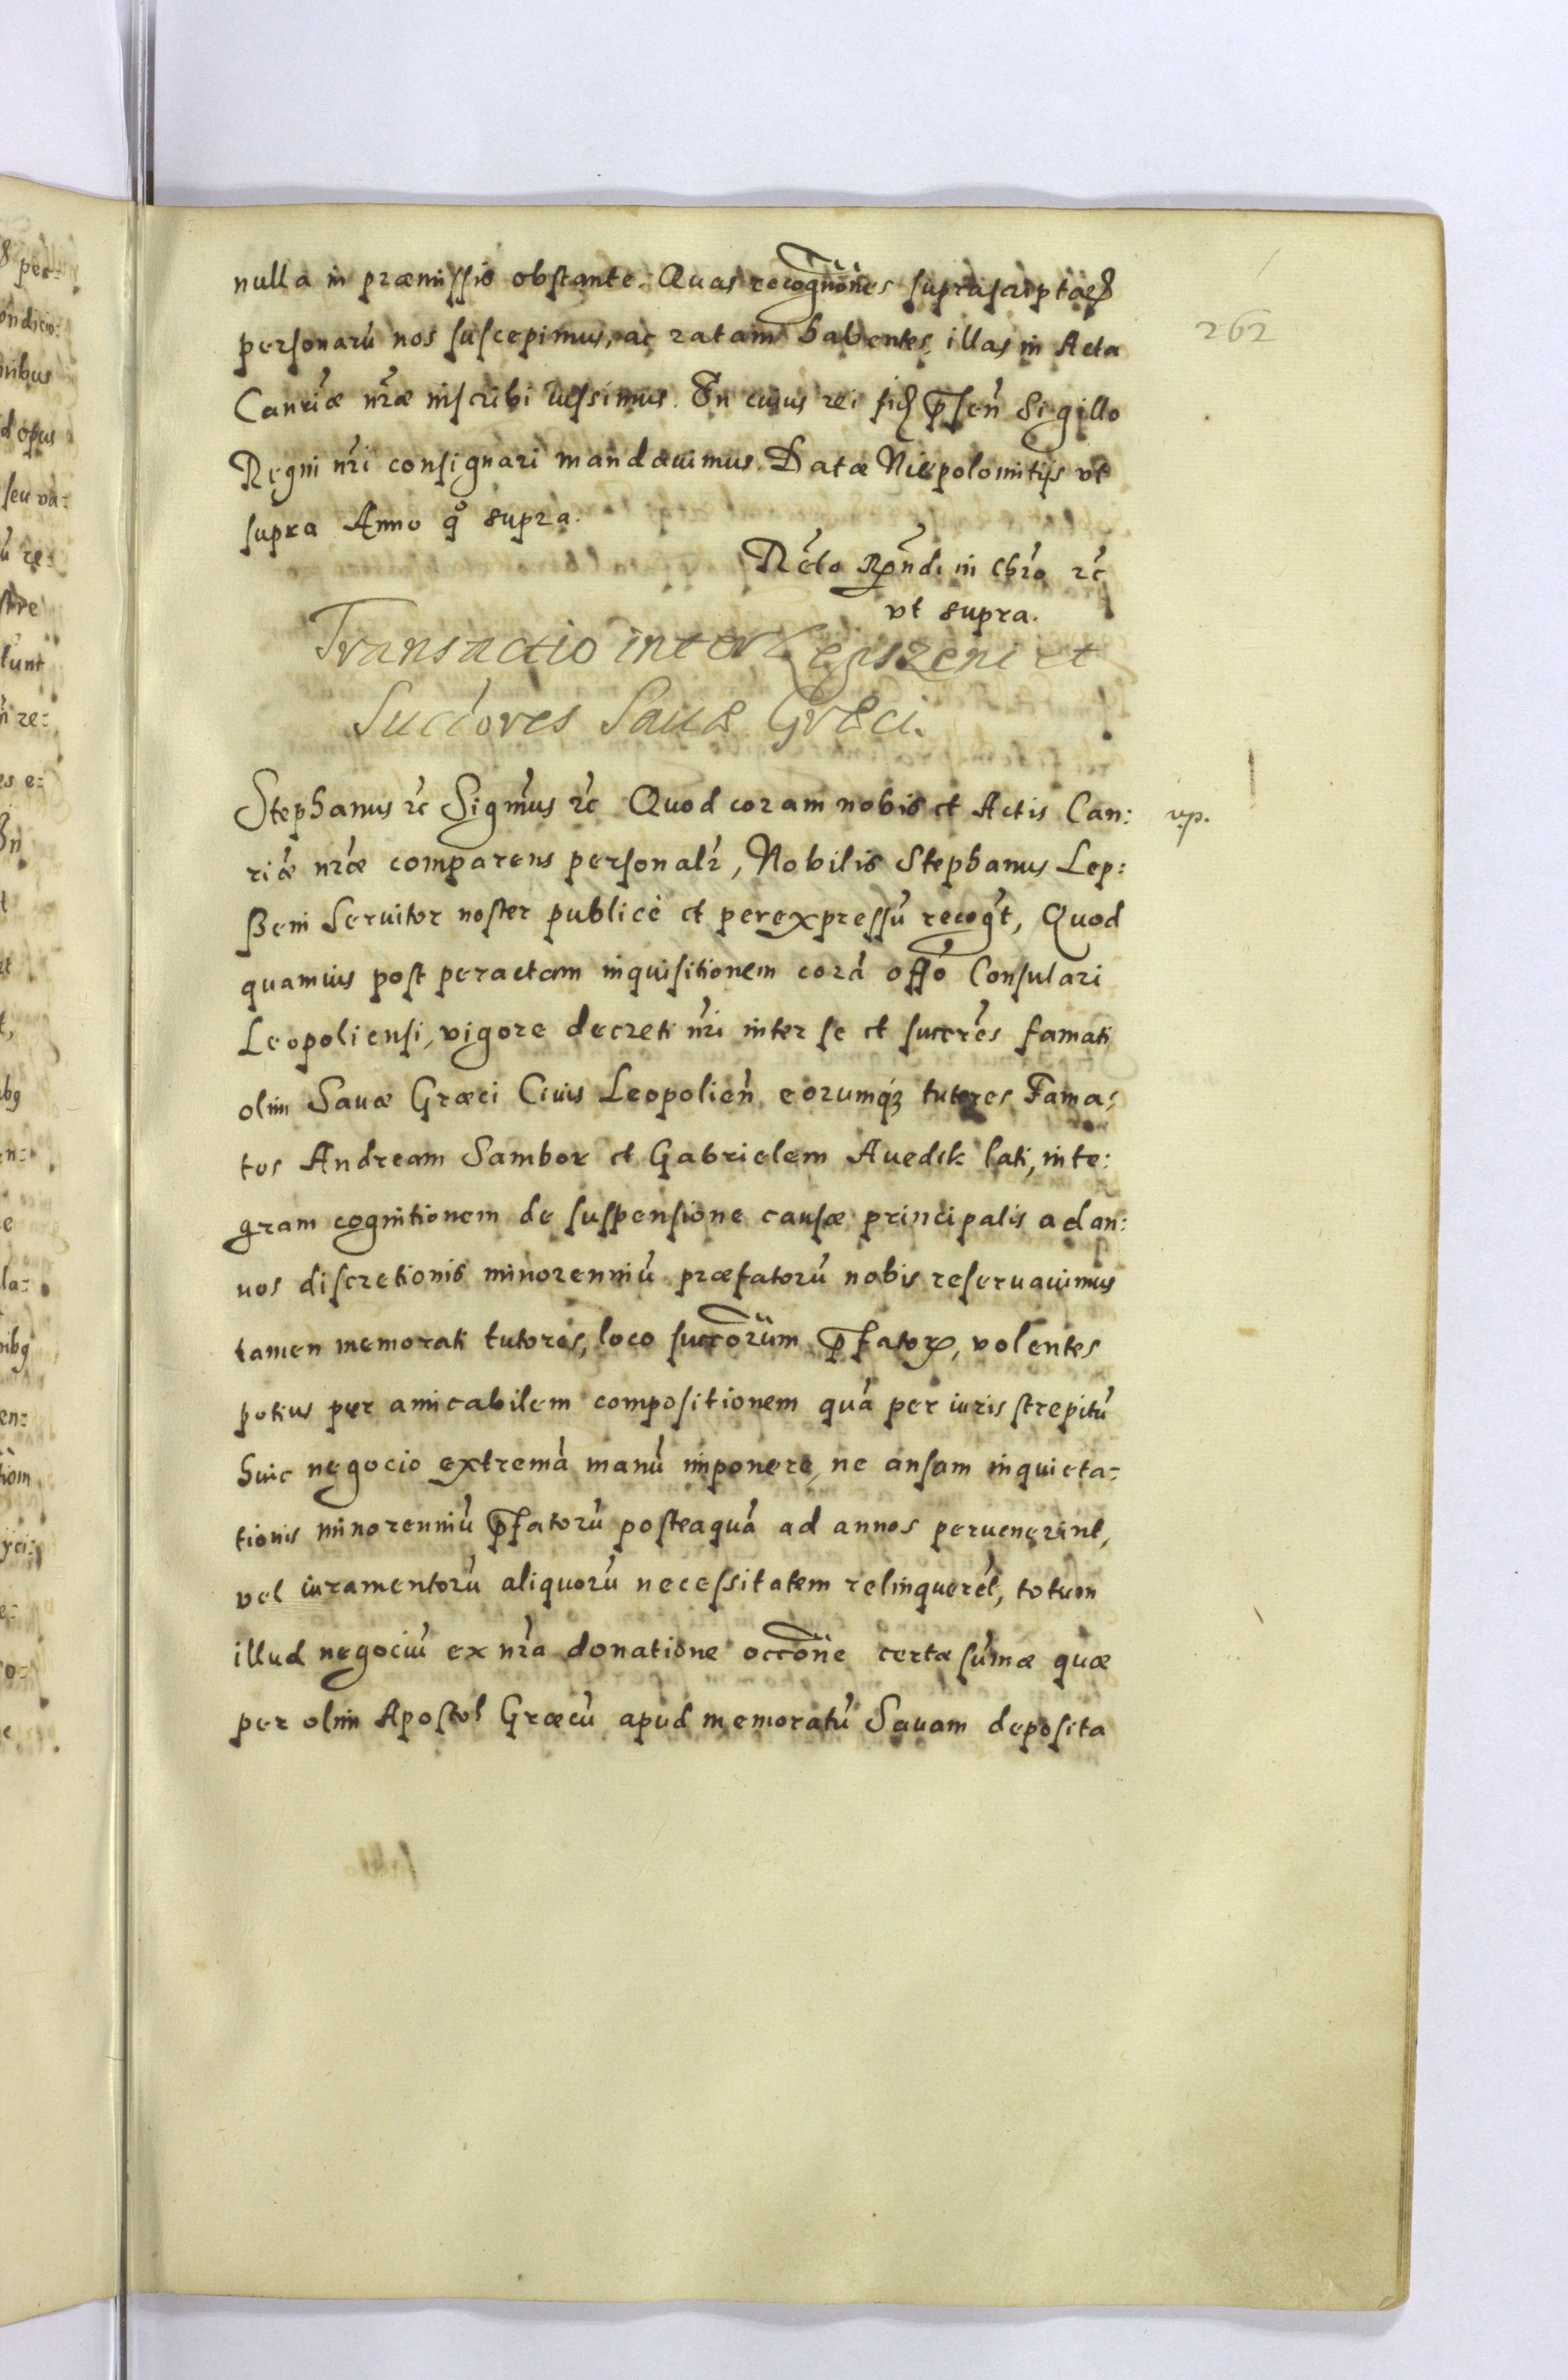 nulla in præmissis obstante. Quas recognõnes suprascriptaꝝ
personarũ nos suscepimus, ac ratam habentes, illas in Acta
Canriæ nr̃æ inscribi iussimus. In cuius rei fid̃ p̃sen̄ Sigillo
Regni nr̃i consignari mandauimus. Datæ Niepolomitijs vt
supra Anno qº supra.
Rc̃to Rp̃ndi in Cbr̃o rc̃
vt supra.
262
Transactio inter Lepszeni et
Succ̃ores Sauæ Græci.
Stephanus rc̃ Sigm̃us rc̃ Quod coram nobis et Actis Can:
vp.
riæ nr̃æ comparens personalr̃, Nobilis Stephanus Lep:
ßeni Seruitor noster publicè et perexpressũ recog̃t, Quod
quamuis post peractam inquisitionem corã offõ Consulari
Leopoliensi, vigore decreti nr̃i inter se et succr̃es famati
olim Sauæ Græci Ciuis Leopolien̄ eorumq́ꝫ tutores Fama:
tos Andream Sambor et Gabrielem Auedik lati, inte:
gram cognitionem de suspensione causæ principalis ad an:
nos discretionis minorenniũ præfatorũ nobis reseruauimus
tamen memorati tutores, loco succõrum p̃fatoꝝ, volentes
potius per amicabilem compositionem quã per iuris strepitũ
huic negocio extremã manũ imponere, ne ansam inquieta:
tionis minorenniũ p̃fatorũ posteaquã ad annos peruenerint,
vel iuramentorũ aliquorũ necessitatem relinquerẽt, totum
illud negociũ ex nr̃a donatione occõne certæ sum̃æ quæ
per olim Apostol Græcũ apud memoratũ Sauam deposita